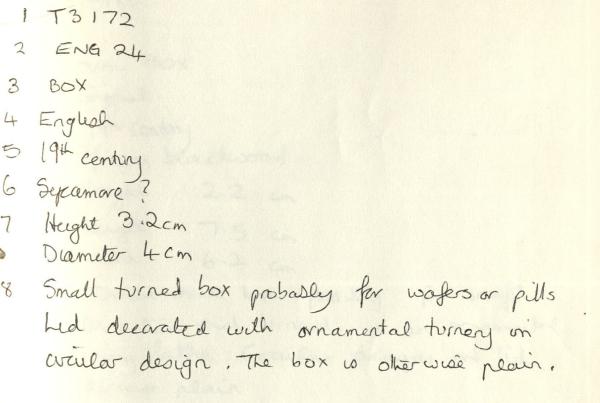 1 T3172
2 ENG 24
3 BOX
4 English
5 19th century
6 Sycamore ?
7 Height 3.2cm
Diameter 4cm
8 Small turned box probably for wafers or pills
Lid decorated with ornamental turnery in
circular design. The box is otherwise plain.